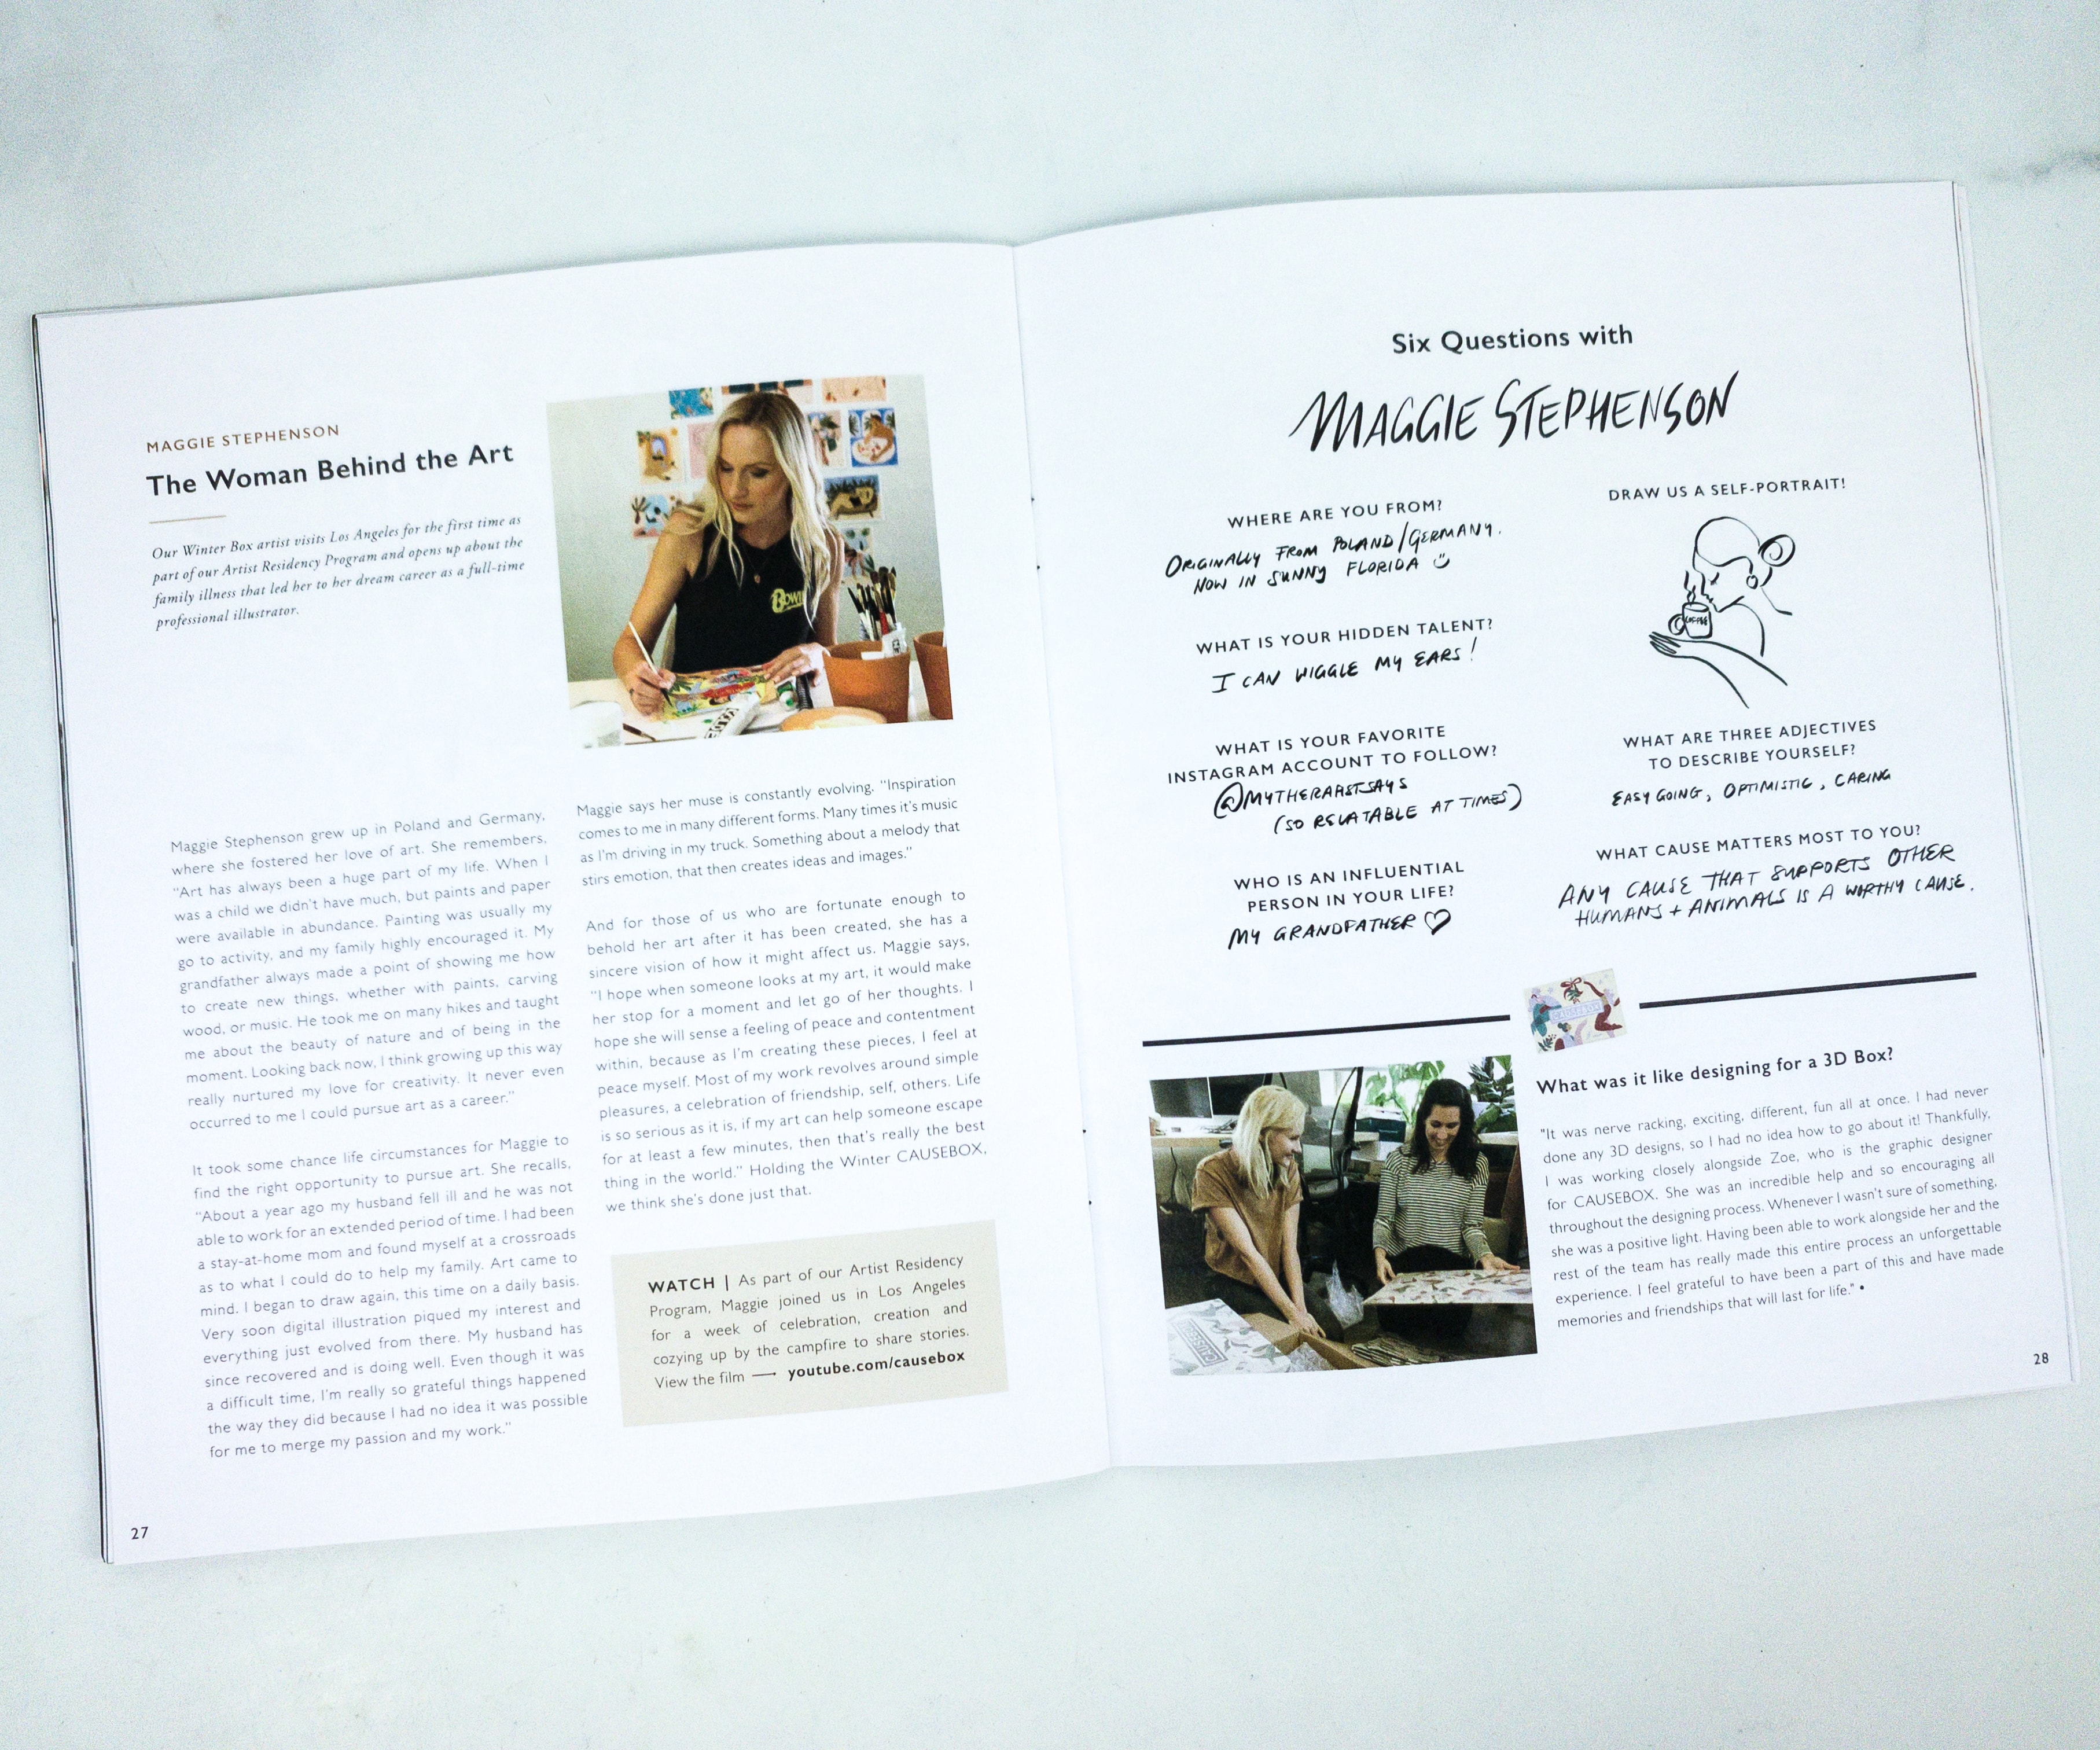 MAGGIE STEPHENSON
The Woman Behind the Art
Our Winter Box artist visits Los Angeles for the first time as
part of our Artist Residency Program and opens up about the
family illness that led her to her dream career as a full-time
professional illustrator.
BOWIE
Maggie Stephenson grew up in Poland and Germany,
where she fostered her love of art. She remembers,
“Art has always been a huge part of my life. When I
was a child we didn't have much, but paints and paper
were available in abundance. Painting was usually my
go to activity, and my family highly encouraged it. My
grandfather always made a point of showing me how
to create new things, whether with paints, carving
wood, or music. He took me on many hikes and taught
me about the beauty of nature and of being in the
moment. Looking back now, I think growing up this way
really nurtured my love for creativity. It never even
occurred to me I could pursue art as a career.”
It took some chance life circumstances for Maggie to
find the right opportunity to pursue art. She recalls,
“About a year ago my husband fell ill and he was not
able to work for an extended period of time. I had been
a stay-at-home mom and found myself at a crossroads
as to what I could do to help my family. Art came to
mind. I began to draw again, this time on a daily basis.
Very soon digital illustration piqued my interest and
everything just evolved from there. My husband has
since recovered and is doing well. Even though it was
a difficult time, I'm really so grateful things happened
the way they did because I had no idea it was possible
for me to merge my passion and my work.”
Maggie says her muse is constantly evolving. “Inspiration
comes to me in many different forms. Many times it's music
as I'm driving in my truck. Something about a melody that
stirs emotion, that then creates ideas and images.”
And for those of us who are fortunate enough to
behold her art after it has been created, she has a
sincere vision of how it might affect us. Maggie says,
“I hope when someone looks at my art, it would make
her stop for a moment and let go of her thoughts. I
hope she will sense a feeling of peace and contentment
within, because as I'm creating these pieces, I feel at
peace myself. Most of my work revolves around simple
pleasures, a celebration of friendship, self, others. Life
is so serious as it is, if my art can help someone escape
for at least a few minutes, then that's really the best
thing in the world.” Holding the Winter CAUSEBOX,
we think she's done just that.
WATCH | As part of our Artist Residency
Program, Maggie joined us in Los Angeles
for a week of celebration, creation and
cozying up by the campfire to share stories.
View the film — youtube.com/causebox
27
Six Questions with
MAGGIE STEPHENSON
WHERE ARE YOU FROM?
ORIGINALLY FROM POLAND/GERMANY.
NOW IN SUNNY FLORIDA
WHAT IS YOUR HIDDEN TALENT?
I CAN WIGGLE MY EARS!
WHAT IS YOUR FAVORITE
INSTAGRAM ACCOUNT TO FOLLOW?
@MYTHERAPISTSAYS
(SO RELATABLE AT TIMES)
WHO IS AN INFLUENTIAL
PERSON IN YOUR LIFE?
MY GRANDFATHER ♡
DRAW US A SELF-PORTRAIT!
COFFEE
WHAT ARE THREE ADJECTIVES
TO DESCRIBE YOURSELF?
EASY GOING, OPTIMISTIC, CARING
WHAT CAUSE MATTERS MOST TO YOU?
ANY CAUSE THAT SUPPORTS OTHER
HUMANS + ANIMALS IS A WORTHY CAUSE.
CAUSEBOX
CAUSEBOX
What was it like designing for a 3D Box?
"It was nerve racking, exciting, different, fun all at once. I had never
done any 3D designs, so I had no idea how to go about it! Thankfully,
I was working closely alongside Zoe, who is the graphic designer
for CAUSEBOX. She was an incredible help and so encouraging all
throughout the designing process. Whenever I wasn't sure of something,
she was a positive light. Having been able to work alongside her and the
rest of the team has really made this entire process an unforgettable
experience. I feel grateful to have been a part of this and have made
memories and friendships that will last for life." •
28